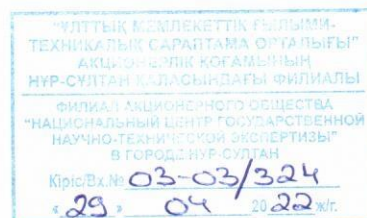 "ҰЛТТЫҚ МЕМЛЕКЕТТІК ҒЫЛЫМИ-
ТЕХНИКАЛЫҚ САРАПТАМА ОРТАЛЫҒЫ"
АКЦИОНЕРЛІК ҚОҒАМЫНЫҢ
НҰР-СҰЛТАН ҚАЛАСЫНДАҒЫ ФИЛИАЛЫ
ФИЛИАЛ АКЦИОНЕРНОГО ОБЩЕСТВА
"НАЦИОНАЛЬНЫЙ ЦЕНТР ГОСУДАРСТВЕННОЙ
НАУЧНО-ТЕХНИЧЕСКОЙ ЭКСПЕРТИЗЫ"
В ГОРОДЕ НУР-СУЛТАН
Кіріс/Вх.№ 03-03/324
"29" 04 2022 ж/г.